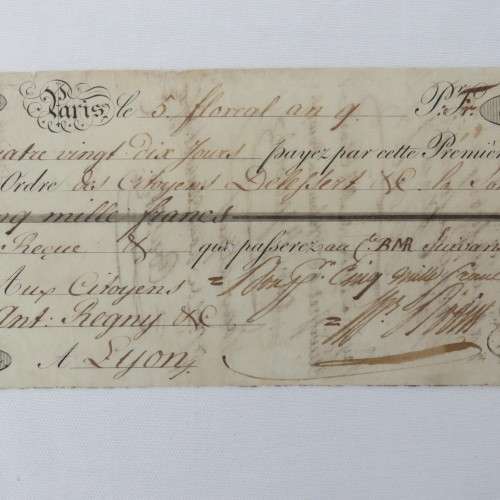 Paris le 5. floreal an 9. P.r Fr.
atre vingt dix Jours payez par cette Premièr
Ordre des Citoyens Delessert &C. la So
nq mille francs
Reçue & que passerez au C.te RMR Suivan
Aux Citoyens = Bon p.r Cinq mille franc
Ant: Regny &C =
A Lyon